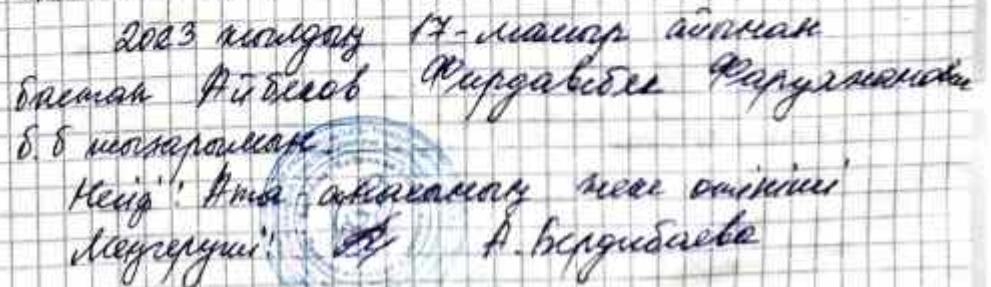 2023 жылдың 17-мамыр айынан
бастап Айбеков Фирдавсбек Фаружанович
б.б шығарылсын.
Негіз: Ата-анасының жеке өтініші
Меңгеруші: А. Бердибаева